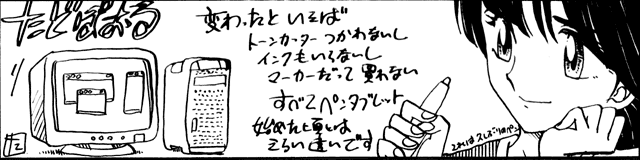 たどぽおる
変わったといえば
トーンカッターつかわないし
インクもいらないし
マーカーだって買わない
すべてペンタブレット
始めた頃とは
えらい違いです
これは